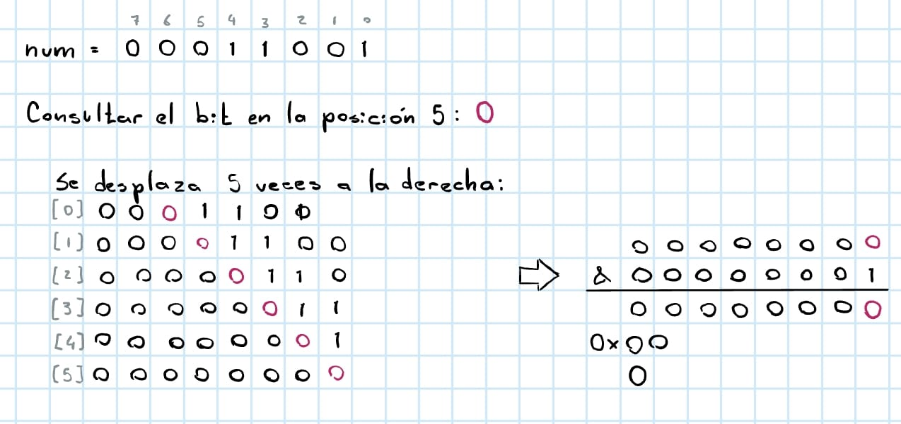 7 6 5 4 3 2 1 0
num = 0 0 0 1 1 0 0 1
Consultar el bit en la posición 5: 0
Se desplaza 5 veces a la derecha:
[0] 0 0 0 1 1 0 0
[1] 0 0 0 0 1 1 0 0
[2] 0 0 0 0 0 1 1 0
[3] 0 0 0 0 0 0 1 1
[4] 0 0 0 0 0 0 0 1
[5] 0 0 0 0 0 0 0 0
0 0 0 0 0 0 0 0
& 0 0 0 0 0 0 0 1
0 0 0 0 0 0 0 0
0x00
0